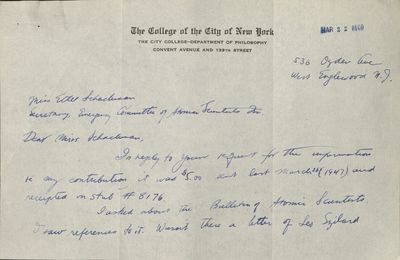 The College of the City of New York
THE CITY COLLEGE-DEPARTMENT OF PHILOSOPHY
CONVENT AVENUE AND 139TH STREET
MAR 22
536 Ogden Ave
West Englewood N.J.
Miss Ethel Schachman
Secretary, Emergency Committee of Atomic Scientists Inc
Dear Miss Schachman,
In reply to your request for the information
re my contribution it was $5.00 sent last March (1947) and
receipted on stub # 8176.
I asked about the Bulletin of Atomic Scientists.
I saw references to it. Wasn't there a letter of Leo Szilard